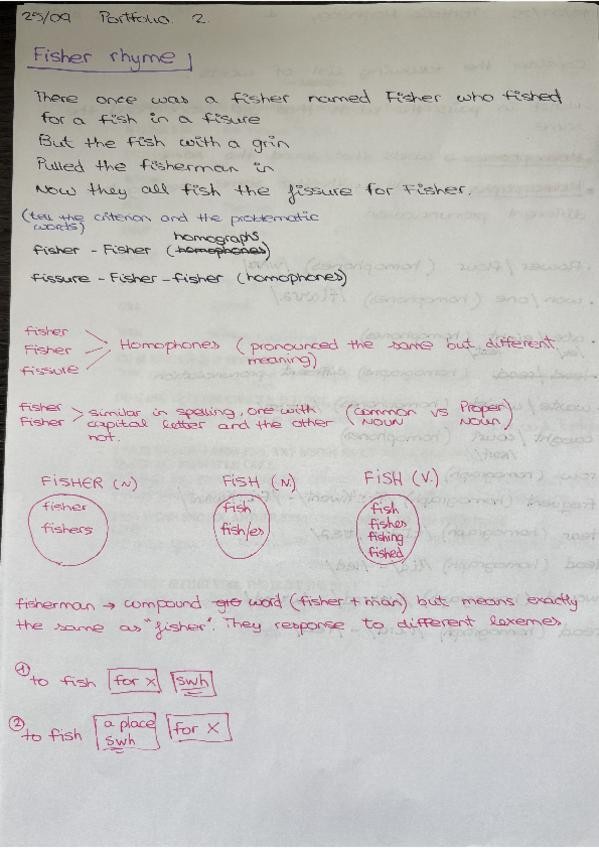 25/09 Portfolio 2.
Fisher rhyme
There once was a fisher named Fisher who fished
for a fish in a fisure
But the fish with a grin
Pulled the fisherman in
Now they all fish the fissure for Fisher.
(tell the criterion and the problematic
words)
homographs
fisher - Fisher (homophones)
fissure - Fisher - fisher (homophones)
fisher
Fisher
fissure
Homophones (pronounced the same but different
meaning)
fisher
Fisher
similar in spelling, one with
capital letter and the other
not.
(common vs Proper)
noun noun
FISHER (N) FISH (N) FISH (V.)
fisher
fishers
fish
fish/es
fish
fishes
fishing
fished
fisherman → compound word (fisher + man) but means exactly
the same as "fisher". They response to different lexemes.
① to fish for x swh
② to fish a place swh for X